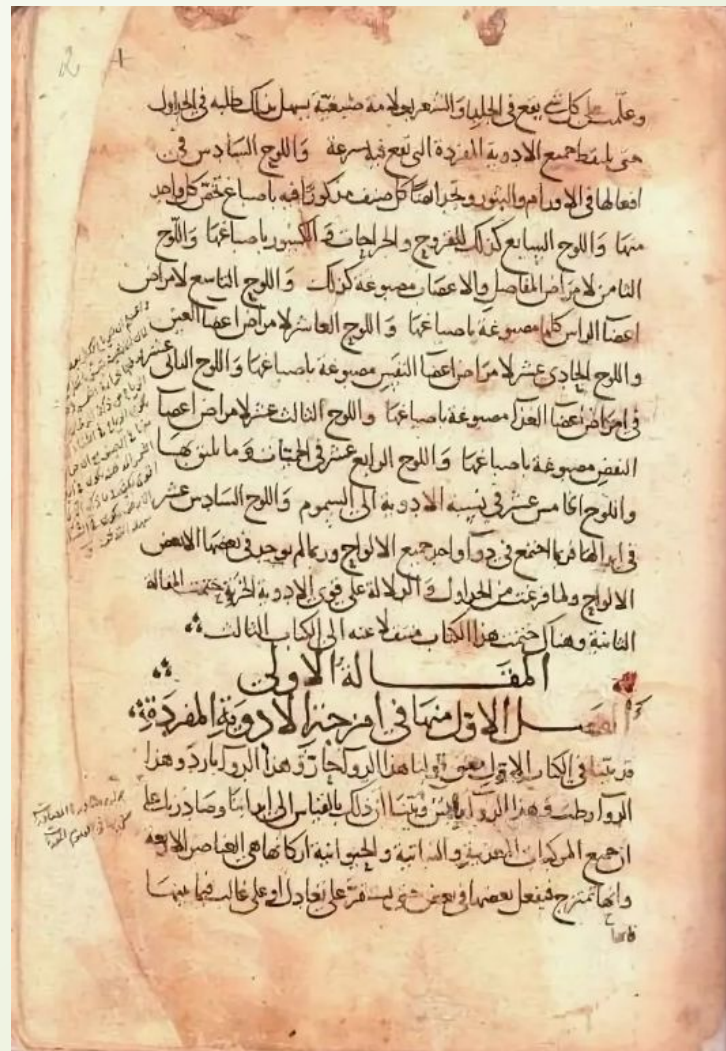 2
وعلمت على كل شي يقع في الجلد والشعر بعلامة صبغية يسهل بذلك طلبه في الجداول
حتى يلتقط جميع الادوية المفردة التي تقع فيه بسرعة واللوح السادس في
افعالها في الاورام والبثور وتجد ايضا كل صنف مذكورا فيه باصباغ تخص كل واحد
منها واللوح السابع كذلك للقروح والجراحات والكسور باصباغها واللوح
الثامن لامراض المفاصل والاعصاب مصبوغة كذلك واللوح التاسع لامراض
اعضا الراس كلها مصبوغة باصباغها واللوح العاشر لامراض اعضا العين
واللوح الحادي عشر لامراض اعضا النفس مصبوغة باصباغها واللوح الثاني عشر
في امراض اعضا الغذا مصبوغة باصباغها واللوح الثالث عشر لامراض اعضا
النفض مصبوغة باصباغها واللوح الرابع عشر في الحميات وما يليق بها
واللوح الخامس عشر في نسبة الادوية الى السموم واللوح السادس عشر
في ابدالها فربما اجتمع في دوآ واحد جميع الالواح وربما لم يوجد في بعضها الا بعض
الالواح ولما فرغت من الجداول والدلالة على قوى الادوية الجزية ختمت المقالة
الثانية وهناك ختمت هذا الكتاب منتقلا عنه الى الكتاب الثالث
المقالة الاولى
الفصل الاول منها في امزجة الادوية المفردة
قد بينا في الكتاب الاول معنى قولنا هذا الدوآ حار وهذا الدوآ بارد وهذا
الدوا رطب وهذا الدوآ يابس وبينا ان ذلك بالقياس الى ابداننا وصادرنا على
ان جميع المركبات المعدنية والنباتية والحيوانية اركانها هي العناصر الاربعة
وانها تمتزج فيفعل بعضها في بعض حتى يستقر على تعادل او على غالب فيما بينها